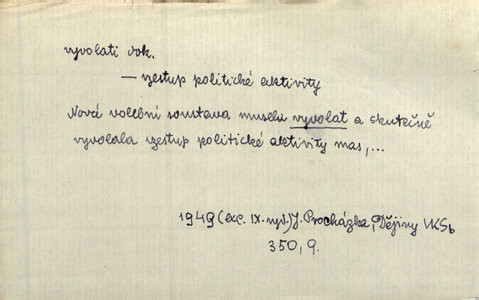 vyvolati dok.
— vzestup politické aktivity
Nová volební soustava musela vyvolat a skutečně
vyvolala vzestup politické aktivity mas,...
1949 (exc. IX. vyd.) J. Procházka, Dějiny VKSb
350, 9.